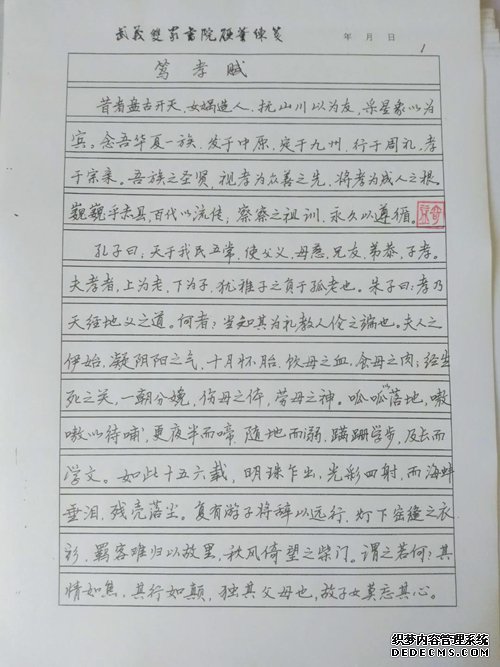 武义双泉书院硬笔练笺
年 月 日
1
笃孝赋
昔者盘古开天，女娲造人，抚山川以为友，采星象以为
宾。念吾华夏一族，发于中原，定于九州，行于周礼，孝
于宗亲。吾族之圣贤，视孝为众善之先，将孝为成人之根。
巍巍乎赤县，百代以流传，察察之祖训，永久以遵循。
孔子曰：天于我民五常，使父义，母慈，兄友，弟恭，子孝。
夫孝者，上为老，下为子，犹稚子之负于孤老也。朱子曰：孝乃
天经地义之道。何者？当知其为礼教人伦之端也。夫人之
伊始，凝阴阳之气，十月怀胎，饮母之血，食母之肉；经生
死之关，一朝分娩，伤母之体，劳母之神。呱呱以落地，嗷
嗷以待哺，更夜半而啼，随地而溺，蹒跚学步，及长而
学文。如此十五六载，明珠乍出，光彩四射，而海蚌
垂泪，残壳落尘。复有游子将辞以远行，灯下密缝之衣
衫，羁客难归以故里，秋风倚望之柴门。谓之若何？其
情如焦，其行如颠，独其父母也，故子女莫忘其心。
织梦内容管理系统
DEDECMS.COM